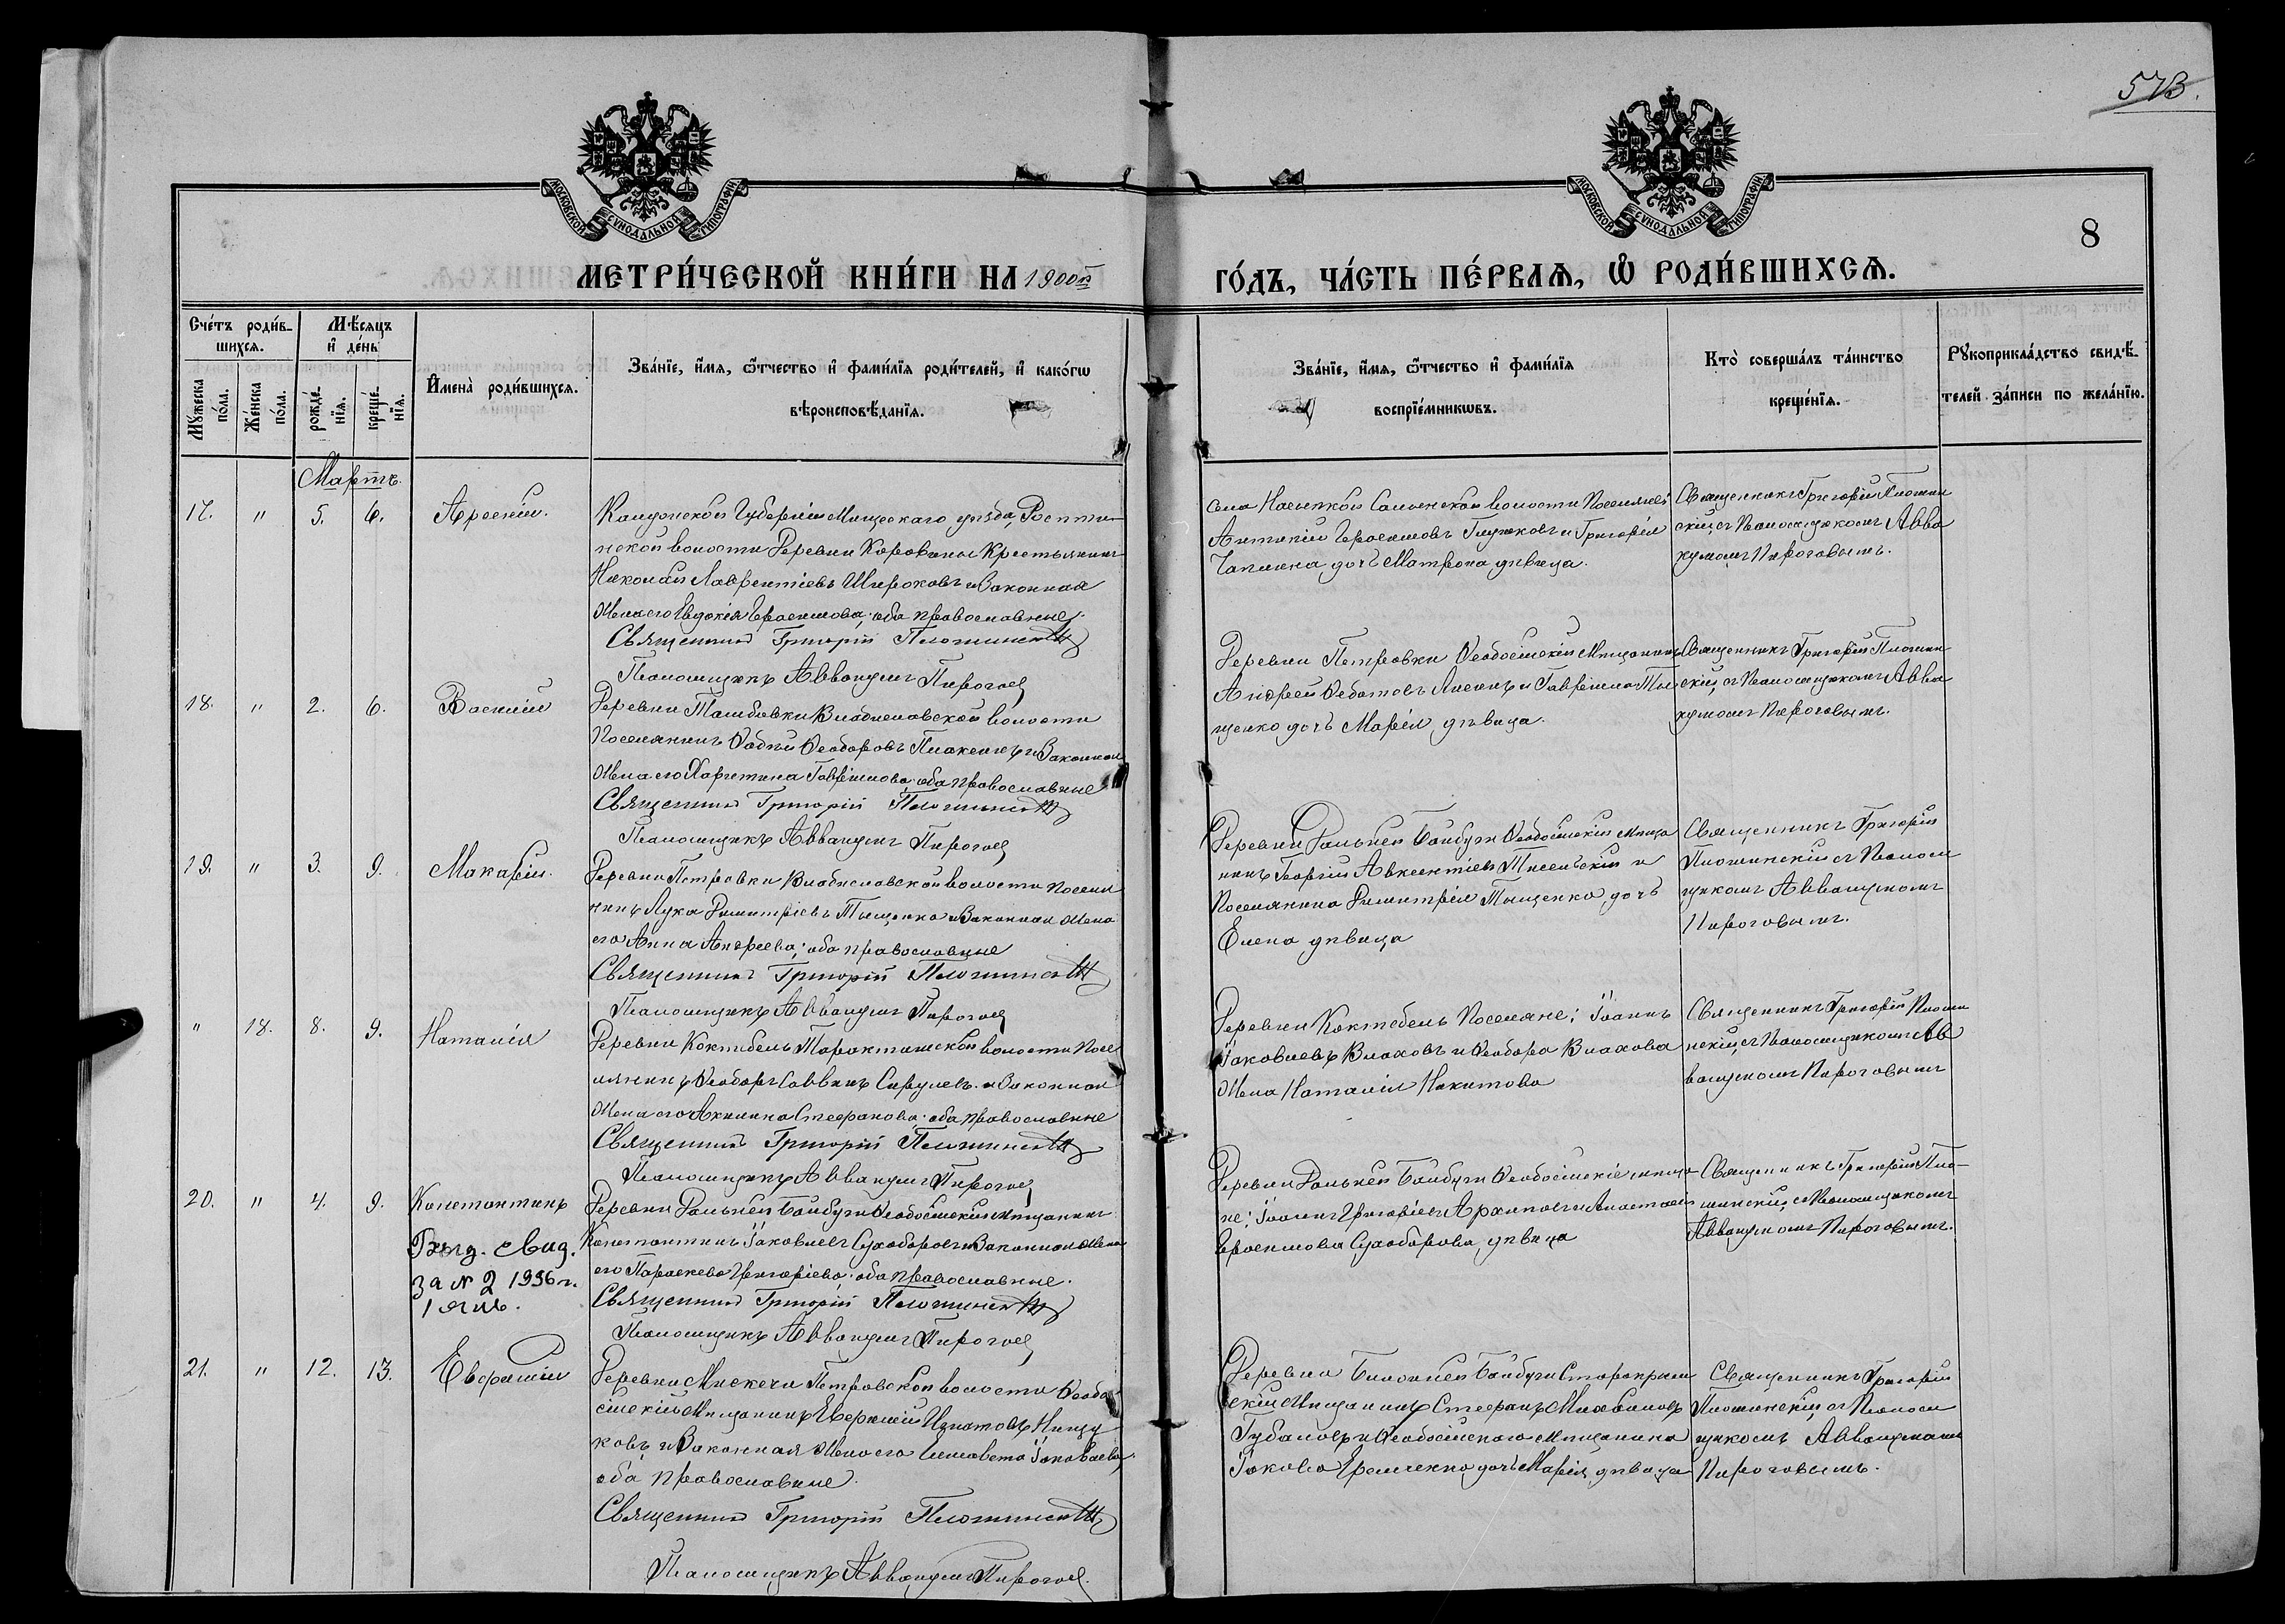 573.
МОСКОВСКОЙ СѴНОДАЛЬНОЙ ТИПОГРАФІИ
МОСКОВСКОЙ СѴНОДАЛЬНОЙ ТИПОГРАФІИ
8
МЕТРИ́ЧЕСКОЙ КНИ́ГИ НА 1900й
ГО́ДЪ, ЧА́СТЬ ПЕ́РВАЯ, Ѡ РОДИ́ВШИХСЯ.
Сче́тъ роди́в-
шихся.
Мꙋжеска по́ла.
Же́нска по́ла.
Мѣ́сяцъ
и де́нь
рожде́-
нія.
креще́-
нія.
Имена̀ роди́вшихся.
Зва́ніе, и́мя, ѻ́тчество и фами́лія роди́телей, и како́гѡ
вѣроисповѣ́данія.
Зва́ніе, и́мя, ѻ́тчество и фами́лія
воспріе́мникѡвъ.
Кто̀ соверша́лъ та́инство
креще́нія.
Рꙋкоприкла́дство свидѣ́-
телей за́писи по жела́нію.
Мартъ.
17. " 5. 6. Арсеній.
Калужской Губерніи Мещоскаго уѣзда,
волости Деревни Крестьянинъ
Николай Лаврентіевъ Широковъ и Законная
Жена его Евдокія Герасимова; оба православные.
Священникъ Григорій Плотинскій
Псаломщикъ Аввакумъ Пироговъ
волости Поселяне;
Антоній Герасимовъ и Григорія
дочь Матрона дѣвица.
Священникъ Григорій Плотин
скій, съ Псаломщикомъ Авва
кумомъ Пироговымъ.
18. " 2. 6. Василій
Деревни Владиславской волости
Поселянинъ Ѳеодоровъ и Законная
Жена его Харитина Гавріилова; оба православные
Священникъ Григорій Плотинскій
Псаломщикъ Аввакумъ Пироговъ
Деревни Петровки Ѳеодосійскій Мѣщанинъ
Андрей и Гавріила Ты
щенко дочь Марія, дѣвица.
Священникъ Григорій Плотин
скій, съ Псаломщикомъ Авва
кумомъ Пироговымъ.
19. " 3. 9. Макарій.
Деревни Петровки Владиславской волости Поселя
нинъ Лука Димитріевъ Тыщенко и Законная Жена
его Анна Андреева; оба православные
Священникъ Григорій Плотинскій
Псаломщикъ Аввакумъ Пироговъ
Деревни Дальней Байбуги Ѳеодосійскій Мѣща
нинъ Георгій Авксентіевъ и
Поселянина Димитрія Тыщенко, дочь
Елена дѣвица
Священникъ Григорій
Плотинскій съ Псалом
щикомъ Аввакумомъ
Пироговымъ.
" 18. 8. 9. Наталія
Деревни Коктебель Таракташской волости Посе
лянинъ Ѳеодоръ Саввинъ и Законная
Жена его Акилина Стефанова; оба православные
Священникъ Григорій Плотинскій
Псаломщикъ Аввакумъ Пироговъ
Деревни Коктебель Поселяне; Іоаннъ
Іаковлевъ Влаховъ и Ѳеодора Влахова
Жена Наталія Никитова
Священникъ Григорій Плоти
нскій, съ Псаломщикомъ Ав
вакумомъ Пироговымъ
20. " 4. 9. Константинъ
Выд. свид.
за № 2 1936 г.
1 янв.
Деревни Дальней Байбуги Ѳеодосійскій Мѣщанинъ
Константинъ Іаковлевъ Сухоборовъ и Законная Жена
его Параскева Григоріева; оба православные.
Священникъ Григорій Плотинскій
Псаломщикъ Аввакумъ Пироговъ
Деревни Дальней Байбуги Ѳеодосійскіе мѣща
не; Іоаннъ Григоріевъ Архиповъ и Анастасія
Герасимова Сухоборова, дѣвица
Священникъ Григорій Пло-
тинскій, съ Псаломщикомъ
Аввакумомъ Пироговымъ.
21. " 12. 13. Евфимій
Деревни Петровской волости Ѳеодо
сійскій Мѣщанинъ Игнатовъ
ковъ и Законная Жена его Елисавета Іаковлева,
оба православные.
Священникъ Григорій Плотинскій
Псаломщикъ Аввакумъ Пироговъ.
Деревни Ближней Байбуги Старокрым
скій Мѣщанинъ Стефанъ
Губановъ и Ѳеодосійскаго Мѣщанина
Іакова дочь Марія, дѣвица
Священникъ Григорій
Плотинскій, съ Псалом
щикомъ Аввакумомъ
Пироговымъ.